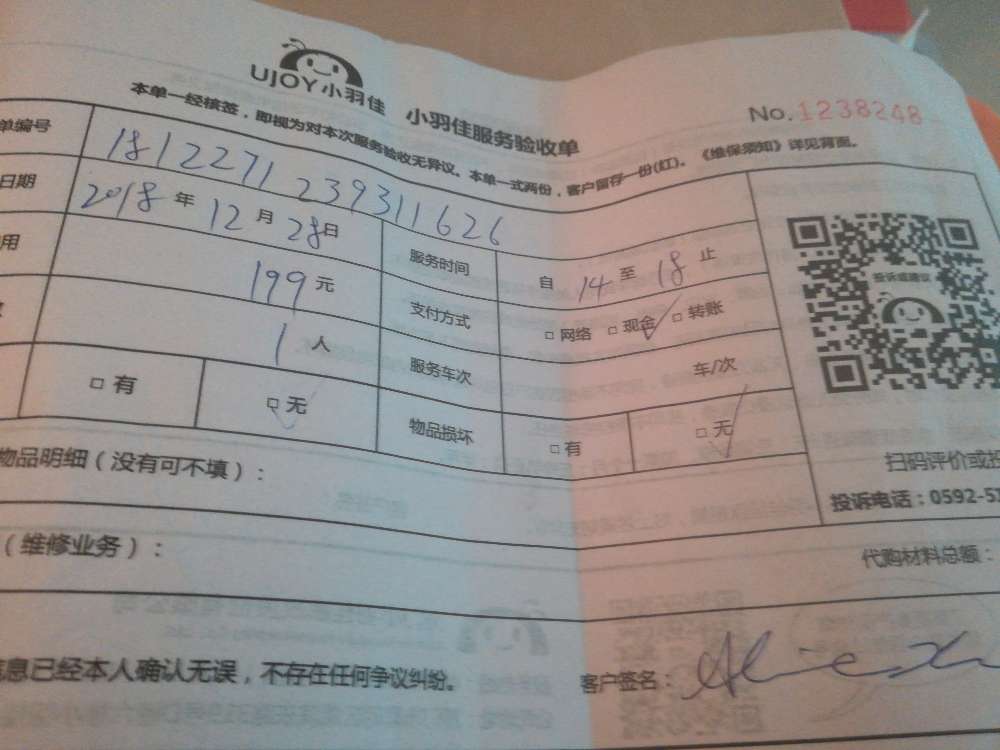 UJOY小羽佳 小羽佳服务验收单
No.1238248
本单一经核签，即视为对本次服务验收无异议。本单一式两份，客户留存一份(红)。《维保须知》详见背面。
单编号 1812271239311626
日期 2018年12月28日 服务时间 自14至18止
用 199元 支付方式 □网络 □现金 □转账
1人 服务车次 车/次
□有 □无 物品损坏 □有 □无
投诉或建议
扫码评价或投
投诉电话：0592-57
物品明细（没有可不填）：
（维修业务）：
代购材料总额：
信息已经本人确认无误，不存在任何争议纠纷。 客户签名：